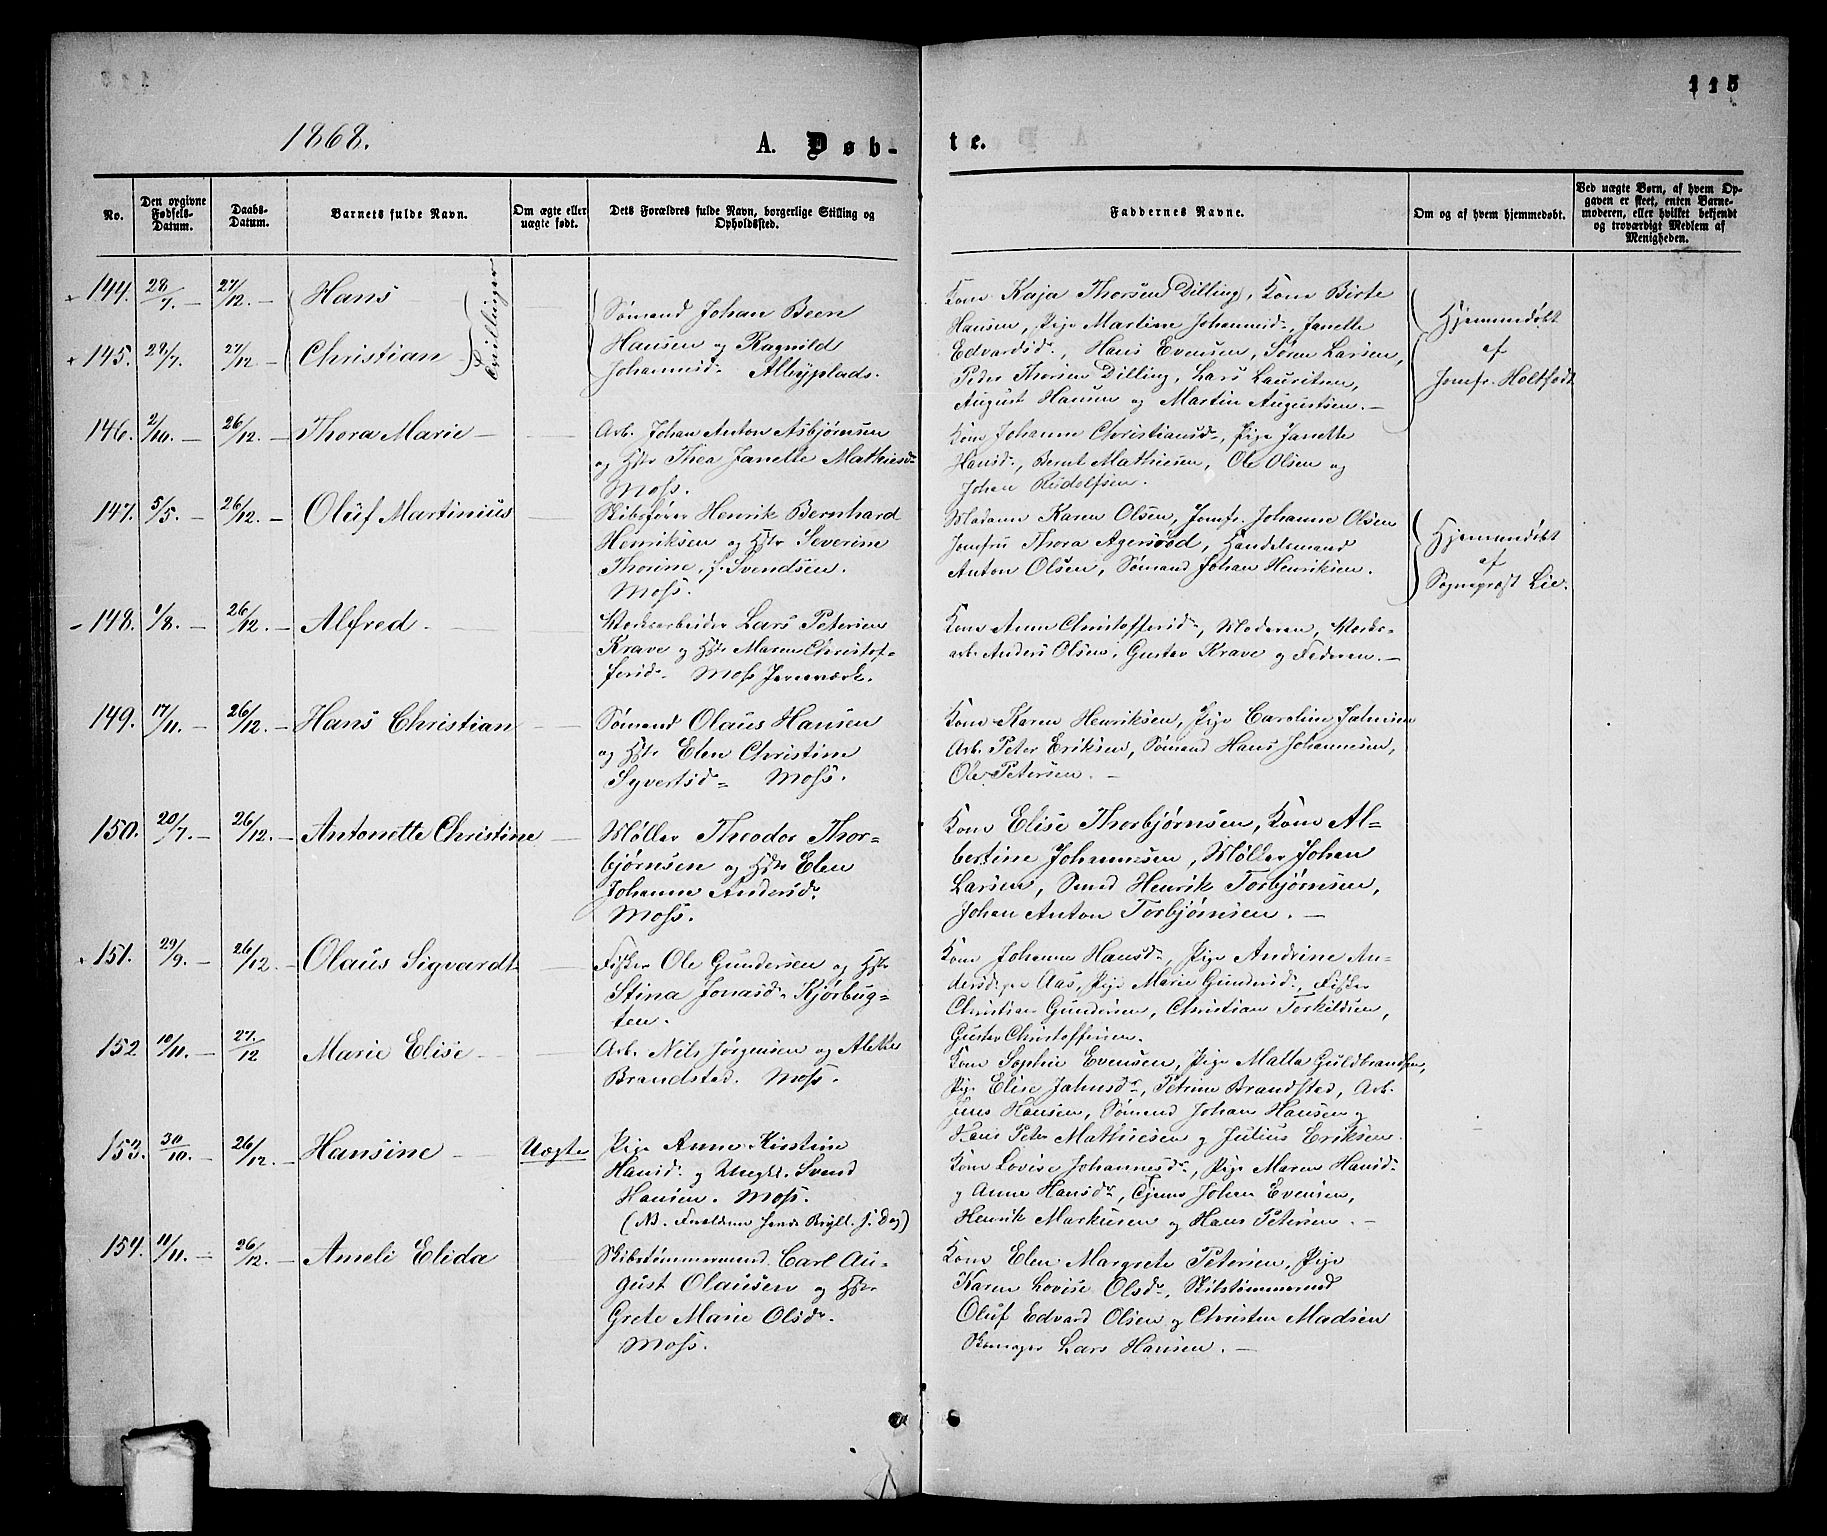 115
1868.
A. Døb-
te.
No.
Den opgivne Fødsels-Datum.
Daabs-Datum.
Barnets fulde Navn.
Om ægte eller uægte født.
Dets Forældres fulde Navn, borgerlige Stilling og Opholdssted.
Faddernes Navne.
Om og af hvem hjemmedøbt.
Ved uægte Børn, af hvem Op-
gaven er skeet, enten Barne-
moderen, eller hvilket bekjendt
og troværdigt Medlem af
Menigheden.
144. 28/7. 27/12. Hans
145. 28/7. 27/12. Christian
Tvillinger
Sømand Johan Been
Hansen og Ragnild
Johannesd. Albyplads.
Kone Kaja Thorsen Dilling, Kone Birte
Hansen, Pige Martine Johannesd., Janette
Edvardsd., Hans Evensen, Søren Larsen,
Peder Thorsen Dilling, Lars Lauritsen,
August Hansen og Martin Augustsen.
Hjemmedøbt
af
Jomfr. Holtfodt
146. 2/10. 26/12. Thora Marie
Arb. Johan Anton Asbjørnsen
og Hstr Thea Janette Mathiesd.
Moss.
Kone Johanne Christiansd., Pige Janette
Hansd., Bernt Mathiesen, Ole Olsen og
Johan Rudolfsen.
147. 5/5. 26/12. Oluf Martinius
Skibsfører Henrik Bernhard
Henriksen og Hstr Severine
Thorine, f. Svendsen.
Moss.
Madame Karen Olsen, Jomfr. Johanne Olsen
Jomfru Thora Agersød, Handelsmand
Anton Olsen, Sømand Johan Henriksen.
Hjemmedøbt
af
Sognepræst Lie.
148. 1/8. 26/12. Alfred.
Værksarbeider Lars Petersen
Krave og Hstr Maren Christof-
fersd. Moss Jernværk.
Kone Anne Christoffersd., Moderen, Værks-
arb. Anders Olsen, Gustav Krave og Faderen.
149. 17/11. 26/12. Hans Christian
Sømand Olaus Hansen
og Hstr Elen Christine
Syvertsd. Moss.
Kone Karen Henriksen, Pige Caroline Jahnsen
Arb. Peter Eriksen, Sømand Hans Johannesen,
Ole Petersen.
150. 20/7. 26/12. Antonette Christine
Møller Theodor Thor-
bjørnsen og Hstr Elen
Johanne Andersd.
Moss.
Kone Elise Thorbjørnsen, Kone Al-
bertine Johannesen, Møller Johan
Larsen, Smed Henrik Torbjørnsen,
Johan Anton Torbjørnsen.
151. 29/9. 26/12. Olaus Sigvardt
Fisker Ole Gundersen og Hstr
Stina Jonasd. Kjørbug-
ten.
Kone Johanne Hansd., Pige Andrine An-
dersd. pr Aas, Pige Marie Gundersd., Fisker
Christian Gundersen, Christian Torkildsen,
Gustav Christoffersen.
152 10/11. 27./12 Marie Elise
Arb. Nils Jørgensen og Alette
Brandsted. Moss.
Kone Sophie Evensen, Pige Malla Guldbrandsen,
Pige Elise Jahnsdr, Petrine Brandsted, Arb.
Jens Hansen, Sømand Johan Hansen og
Hans Peter Mathiesen og Julius Eriksen.
153. 30/10. 26/12. Hansine Uægte
Pige Anne Kirstine
Hansd. og Ungkl. Svend
Hansen. Moss.
(NB. Forældrene havde Bryll. s. Dag)
Kone Lovise Johannesdr, Pige Maren Hansd.
og Anne Hansdr, Tjener Johan Evensen,
Henrik Markusen og Hans Petersen.
154. 11/11. 26/12. Ameli Elida
Skibstømmermand Carl Au-
gust Olausen og Hstr
Grete Marie Olsdr.
Moss.
Kone Elen Margrete Petersen, Pige
Karen Lovise Olsdr, Skibstømmermd
Oluf Edvard Olsen og Christen Madsen
Skomager Lars Hansen.